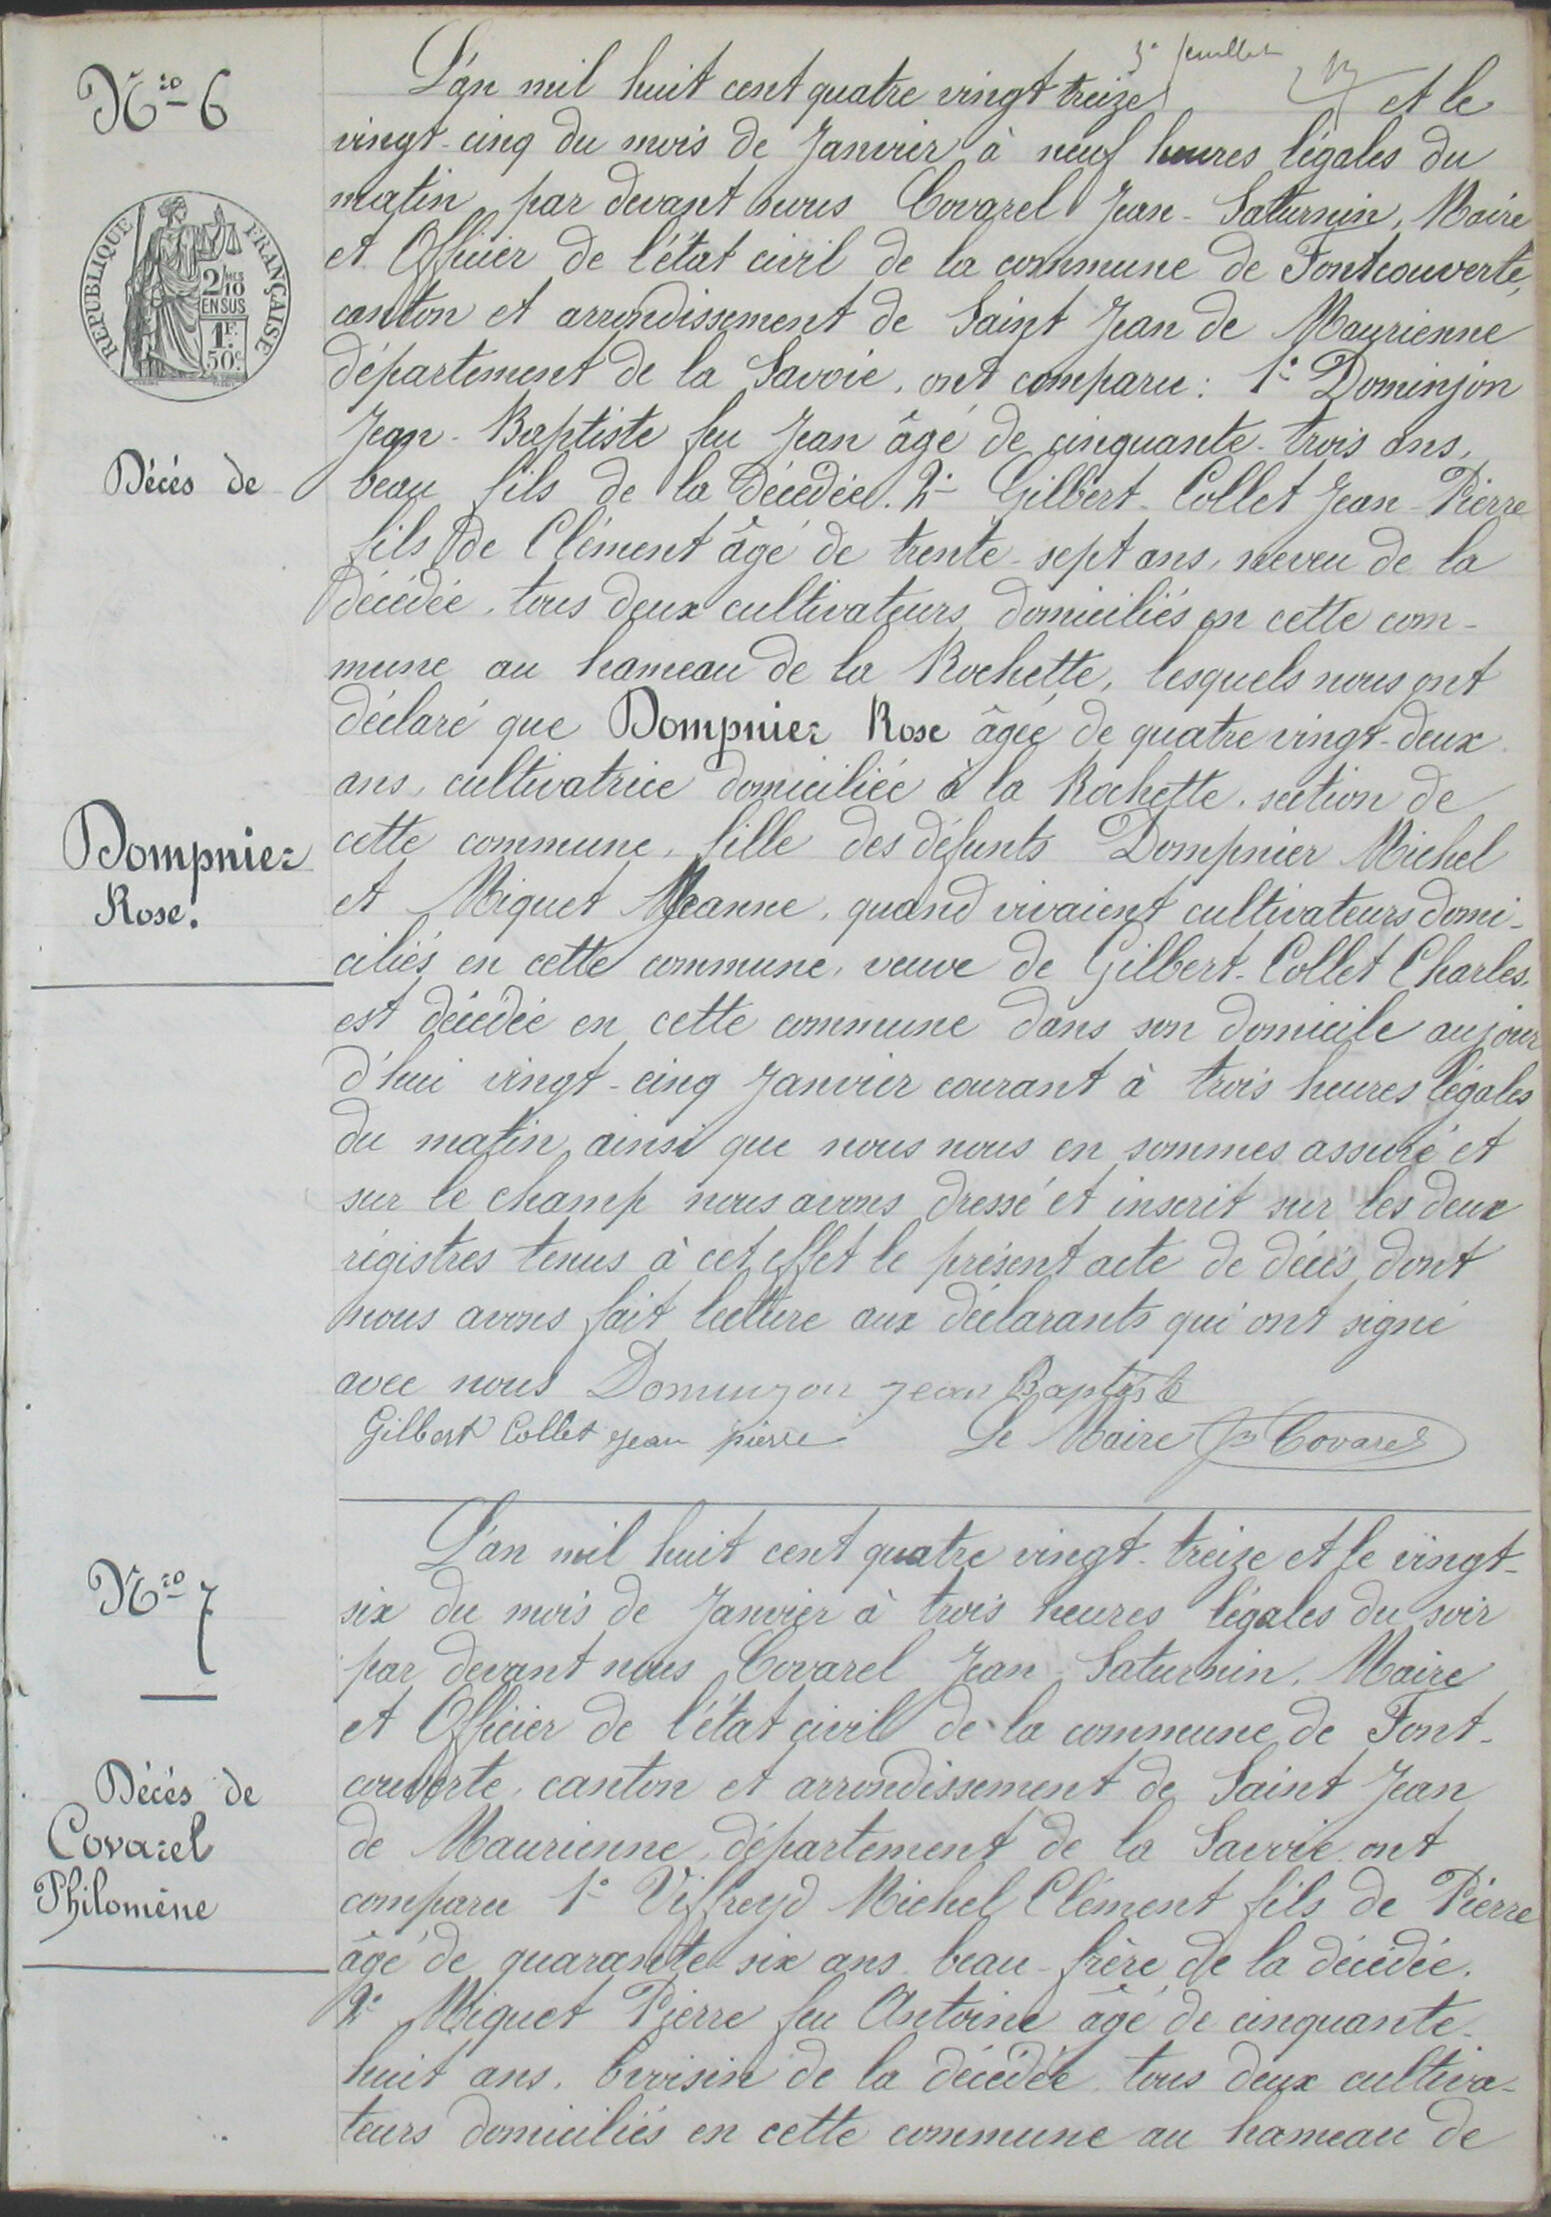 3e feuillet
Nro 6
L'an mil huit cent quatre vingt treize et le
vingt-cinq du mois de Janvier à neuf heures légales du
matin, par devant nous Covarel Jean-Saturnin, Maire
et Officier de l'état civil de la commune de Fontcouverte,
canton et arrondissement de Saint Jean de Maurienne
département de la Savoie, ont comparu: 1° Dominjon
Jean-Baptiste feu Jean âgé de cinquante-trois ans,
Décés de
beau fils de la décédée. 2° Gilbert-Collet Jean-Pierre
fils de Clément âgé de trente-sept ans, neveu de la
décédée, tous deux cultivateurs domiciliés en cette com-
mune au hameau de la Rochette, lesquels nous ont
déclaré que Dompnier Rose âgée de quatre vingt-deux
ans, cultivatrice domiciliée à la Rochette, section de
Dompnier
Rose.
cette commune, fille des défunts Dompnier Michel
et Miquet Jeanne, quand vivaient cultivateurs domi-
ciliés en cette commune, veuve de Gilbert-Collet Charles,
est décédée en cette commune dans son domicile aujour
d'hui vingt-cinq Janvier courant à trois heures légales
du matin, ainsi que nous nous en sommes assuré et
sur le champ nous avons dressé et inscrit sur les deux
régistres tenus à cet effet le présent acte de décés dont
nous avons fait lecture aux déclarants qui ont signé
avec nous Dominjon Jean Baptiste
Gilbert Collet Jean pierre Le Maire Jn Covarel
Nro 7
L'an mil huit cent quatre vingt-treize et le vingt-
six du mois de Janvier à trois heures légales du soir
par devant nous Covarel Jean Saturnin, Maire
et Officier de l'état civil de la commune de Font-
couverte, canton et arrondissement de Saint Jean
Décés de
Covarel
Philomène
de Maurienne, département de la Savoie, ont
comparu 1° Viffreyd Michel Clément fils de Pierre
âgé de quarante-six ans beau-frère de la décédée.
2° Miquet Pierre feu Antoine âgé de cinquante-
huit ans, voisin de la décédée tous deux cultiva-
teurs domiciliés en cette commune au hameau de
REPUBLIQUE FRANÇAISE
2/10 EN SUS
1F. 50c.